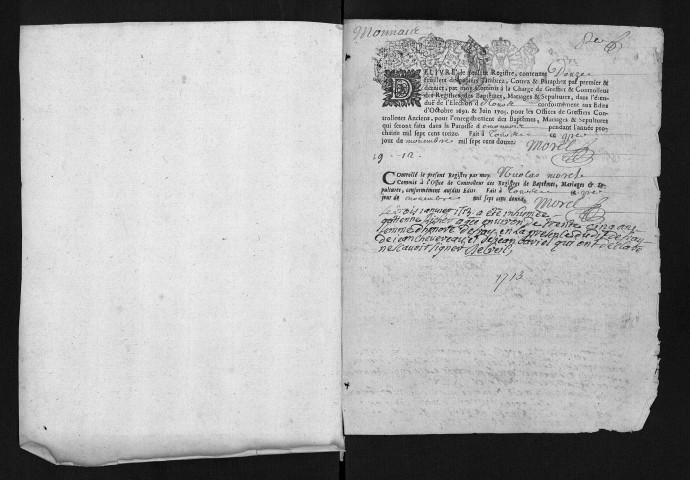 Monnaie
DELIVRÉ le present Registre, contenant Douze
feuillets de papier Timbrez, Cottez & Paraphez par premier &
dernier, par moy Commis à la Charge de Greffier & Controlleur
des Registres des Baptêmes, Mariages & Sepultures, dans l'éten-
duë de l'Election de conformément aux Edits
d'Octobre 1691. & Juin 1705. pour les Offices de Greffiers Con-
trolleurs Anciens, pour l'enregistrement des Baptêmes, Mariages & Sepultures
qui seront faits dans la Paroisse de pendant l'année pro-
chaine mil sept cens treize. Fait à ce
jour de novembre mil sept cens douze. Morel
19 - 12 -
Controllé le present Registre par moy Nicolas morel
Commis à l'Office de Controlleur des Registres de Baptêmes, Mariages & Se-
pultures, conformément ausdits Edits. Fait à ce
jour de novembre mil sept cens douze Morel
Le trois janvier 1713 a été inhumée
gatienne agée environ de trente cinq ans
femme d'honoré en la presence dudit
de et de jean daviet qui ont déclaré
ne sçavoir signer
1713